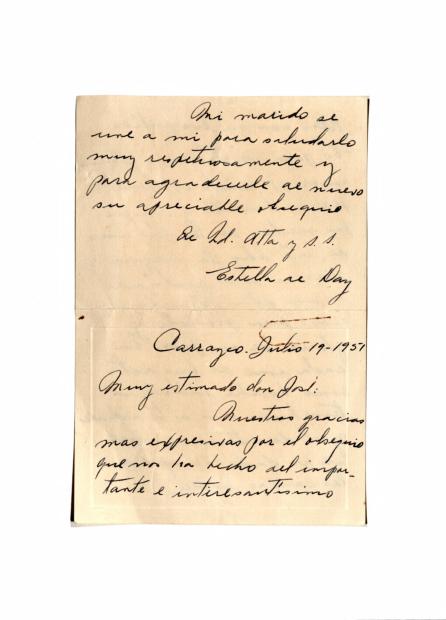 Mi marido se
une a mi para saludarlo
muy respetuosamente y
para agradecerle de nuevo
su apreciable obsequio
De Ud. Atta y S.S.
Estella de Day
Carrasco. Julio 19-1951
Muy estimado don José:
Nuestras gracias
mas expresivas por el obsequio
que nos ha hecho del impor-
tante e interesantísimo